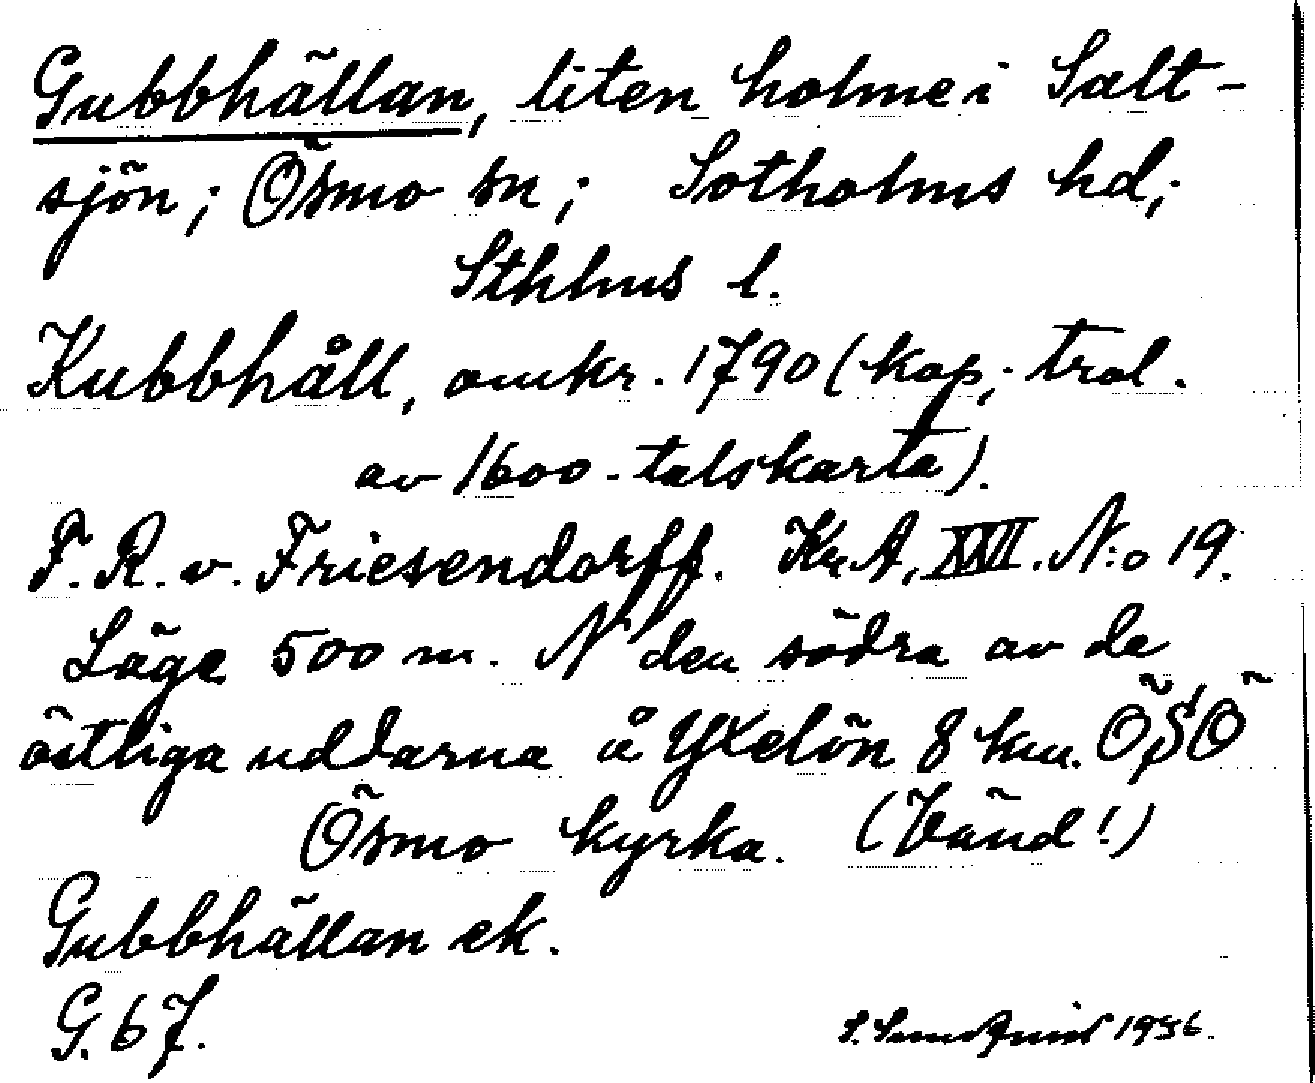 Gubbhällan, liten holme i Salt-
sjön; Ösmo sn; Sotholms hd;
Sthlms l.
Kubbhåll, omkr. 1790 (kop; trol.
av 1600-talskarta).
F. R. v. Friesendorff. Kr.A, XXVI. N:o 19.
Läge 500 m. N den södra av de
östliga uddarna å Yxelön 8 km. ÖSÖ
Ösmo kyrka. (Vänd!)
Gubbhällan ek.
G. 67.
1956.